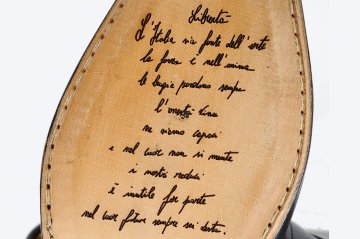 Libertà
L'Italia sia fonte dell'arte
la forza è nell'anima
le bugie perdono sempre
l'onestà
ne siamo capaci
e nel cuor non si mente
i nostri
è inutile far parte
nel cuor futuro sempre sei